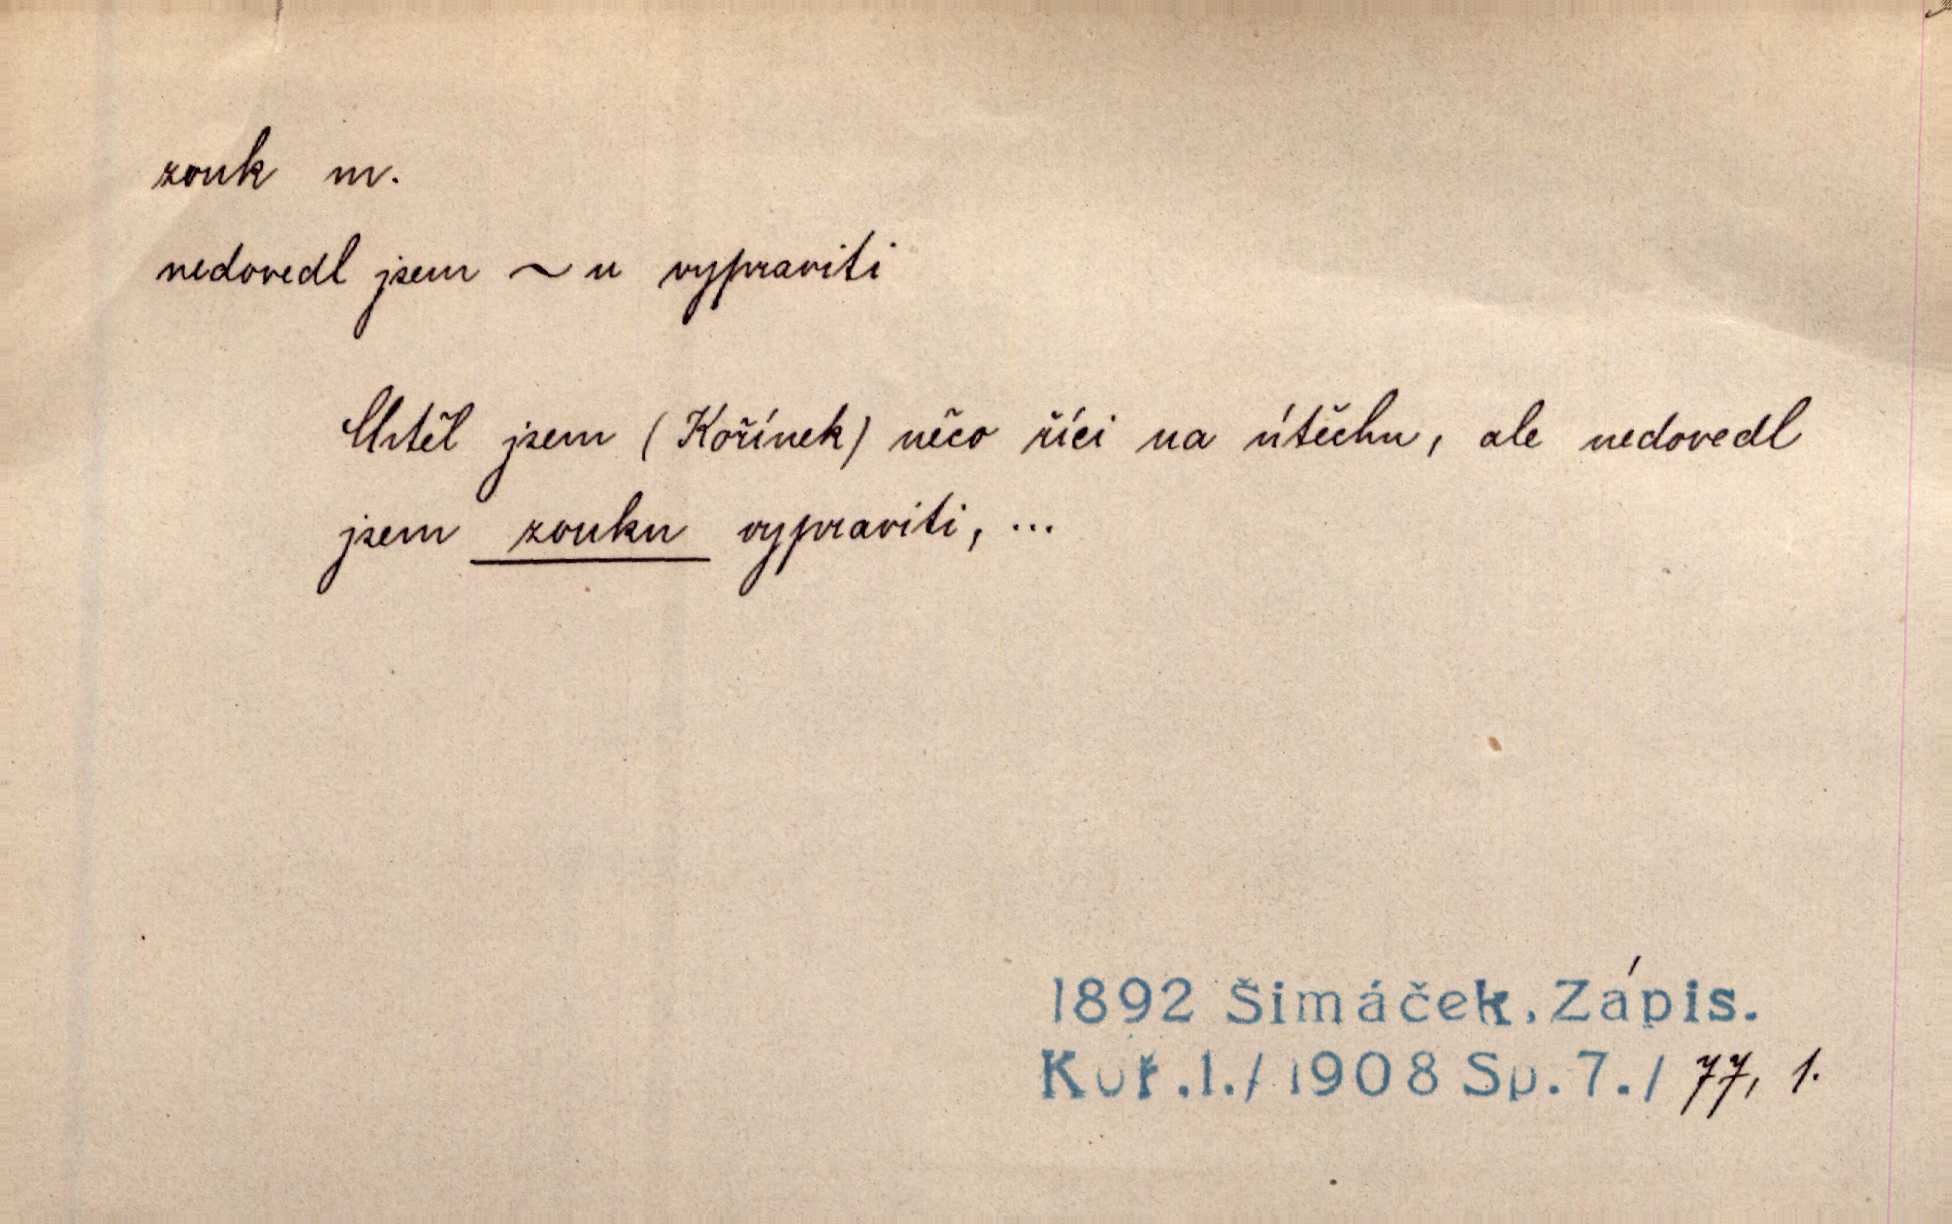 zouk m.
nedovedl jsem ~u vypraviti
Chtěl jsem (Kořínek) něco říci na útěchu, ale nedovedl
jsem zouku vypraviti, ...
1892 Šimáček, Zápis.
Koř.1./1908 Sp.7./ 77, 1.